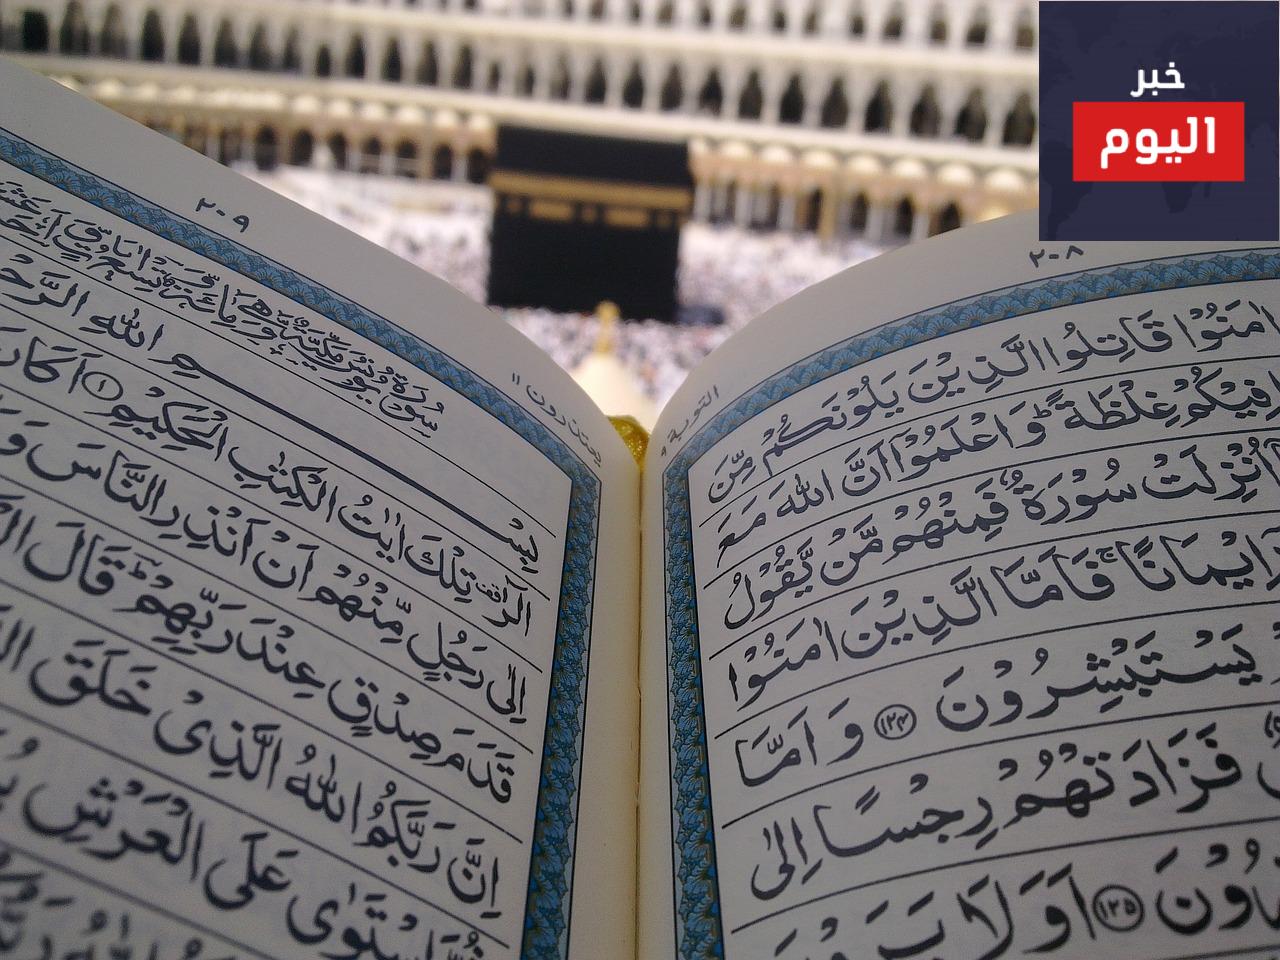 خبر
اليوم
٢٠٨
التوبة ٩
اٰمَنُوْا قَاتِلُوا الَّذِيْنَ يَلُوْنَكُمْ مِّنَ
فِيْكُمْ غِلْظَةً ؕ وَاعْلَمُوْۤا اَنَّ اللّٰهَ مَعَ
اُنْزِلَتْ سُوْرَةٌ فَمِنْهُمْ مَّنْ يَّقُوْلُ
اِيْمَانًا ۚ فَاَمَّا الَّذِيْنَ اٰمَنُوْا
يَسْتَبْشِرُوْنَ ١٢٤ وَاَمَّا
فَزَادَتْهُمْ رِجْسًا اِلٰى
١٢٥ اَوَلَا
٢٠٩
يعتذرون ١١
سُوْرَةُ يُوْنُسَ مَكِّيَّةٌ
بِسْمِ اللّٰهِ
الٓرٰ تِلْكَ اٰيٰتُ الْكِتٰبِ الْحَكِيْمِ ١ اَكَانَ
اِلٰى رَجُلٍ مِّنْهُمْ اَنْ اَنْذِرِ النَّاسَ
قَدَمَ صِدْقٍ عِنْدَ رَبِّهِمْ ؕ قَالَ
اِنَّ رَبَّكُمُ اللّٰهُ الَّذِيْ خَلَقَ
اسْتَوٰى عَلَى الْعَرْشِ